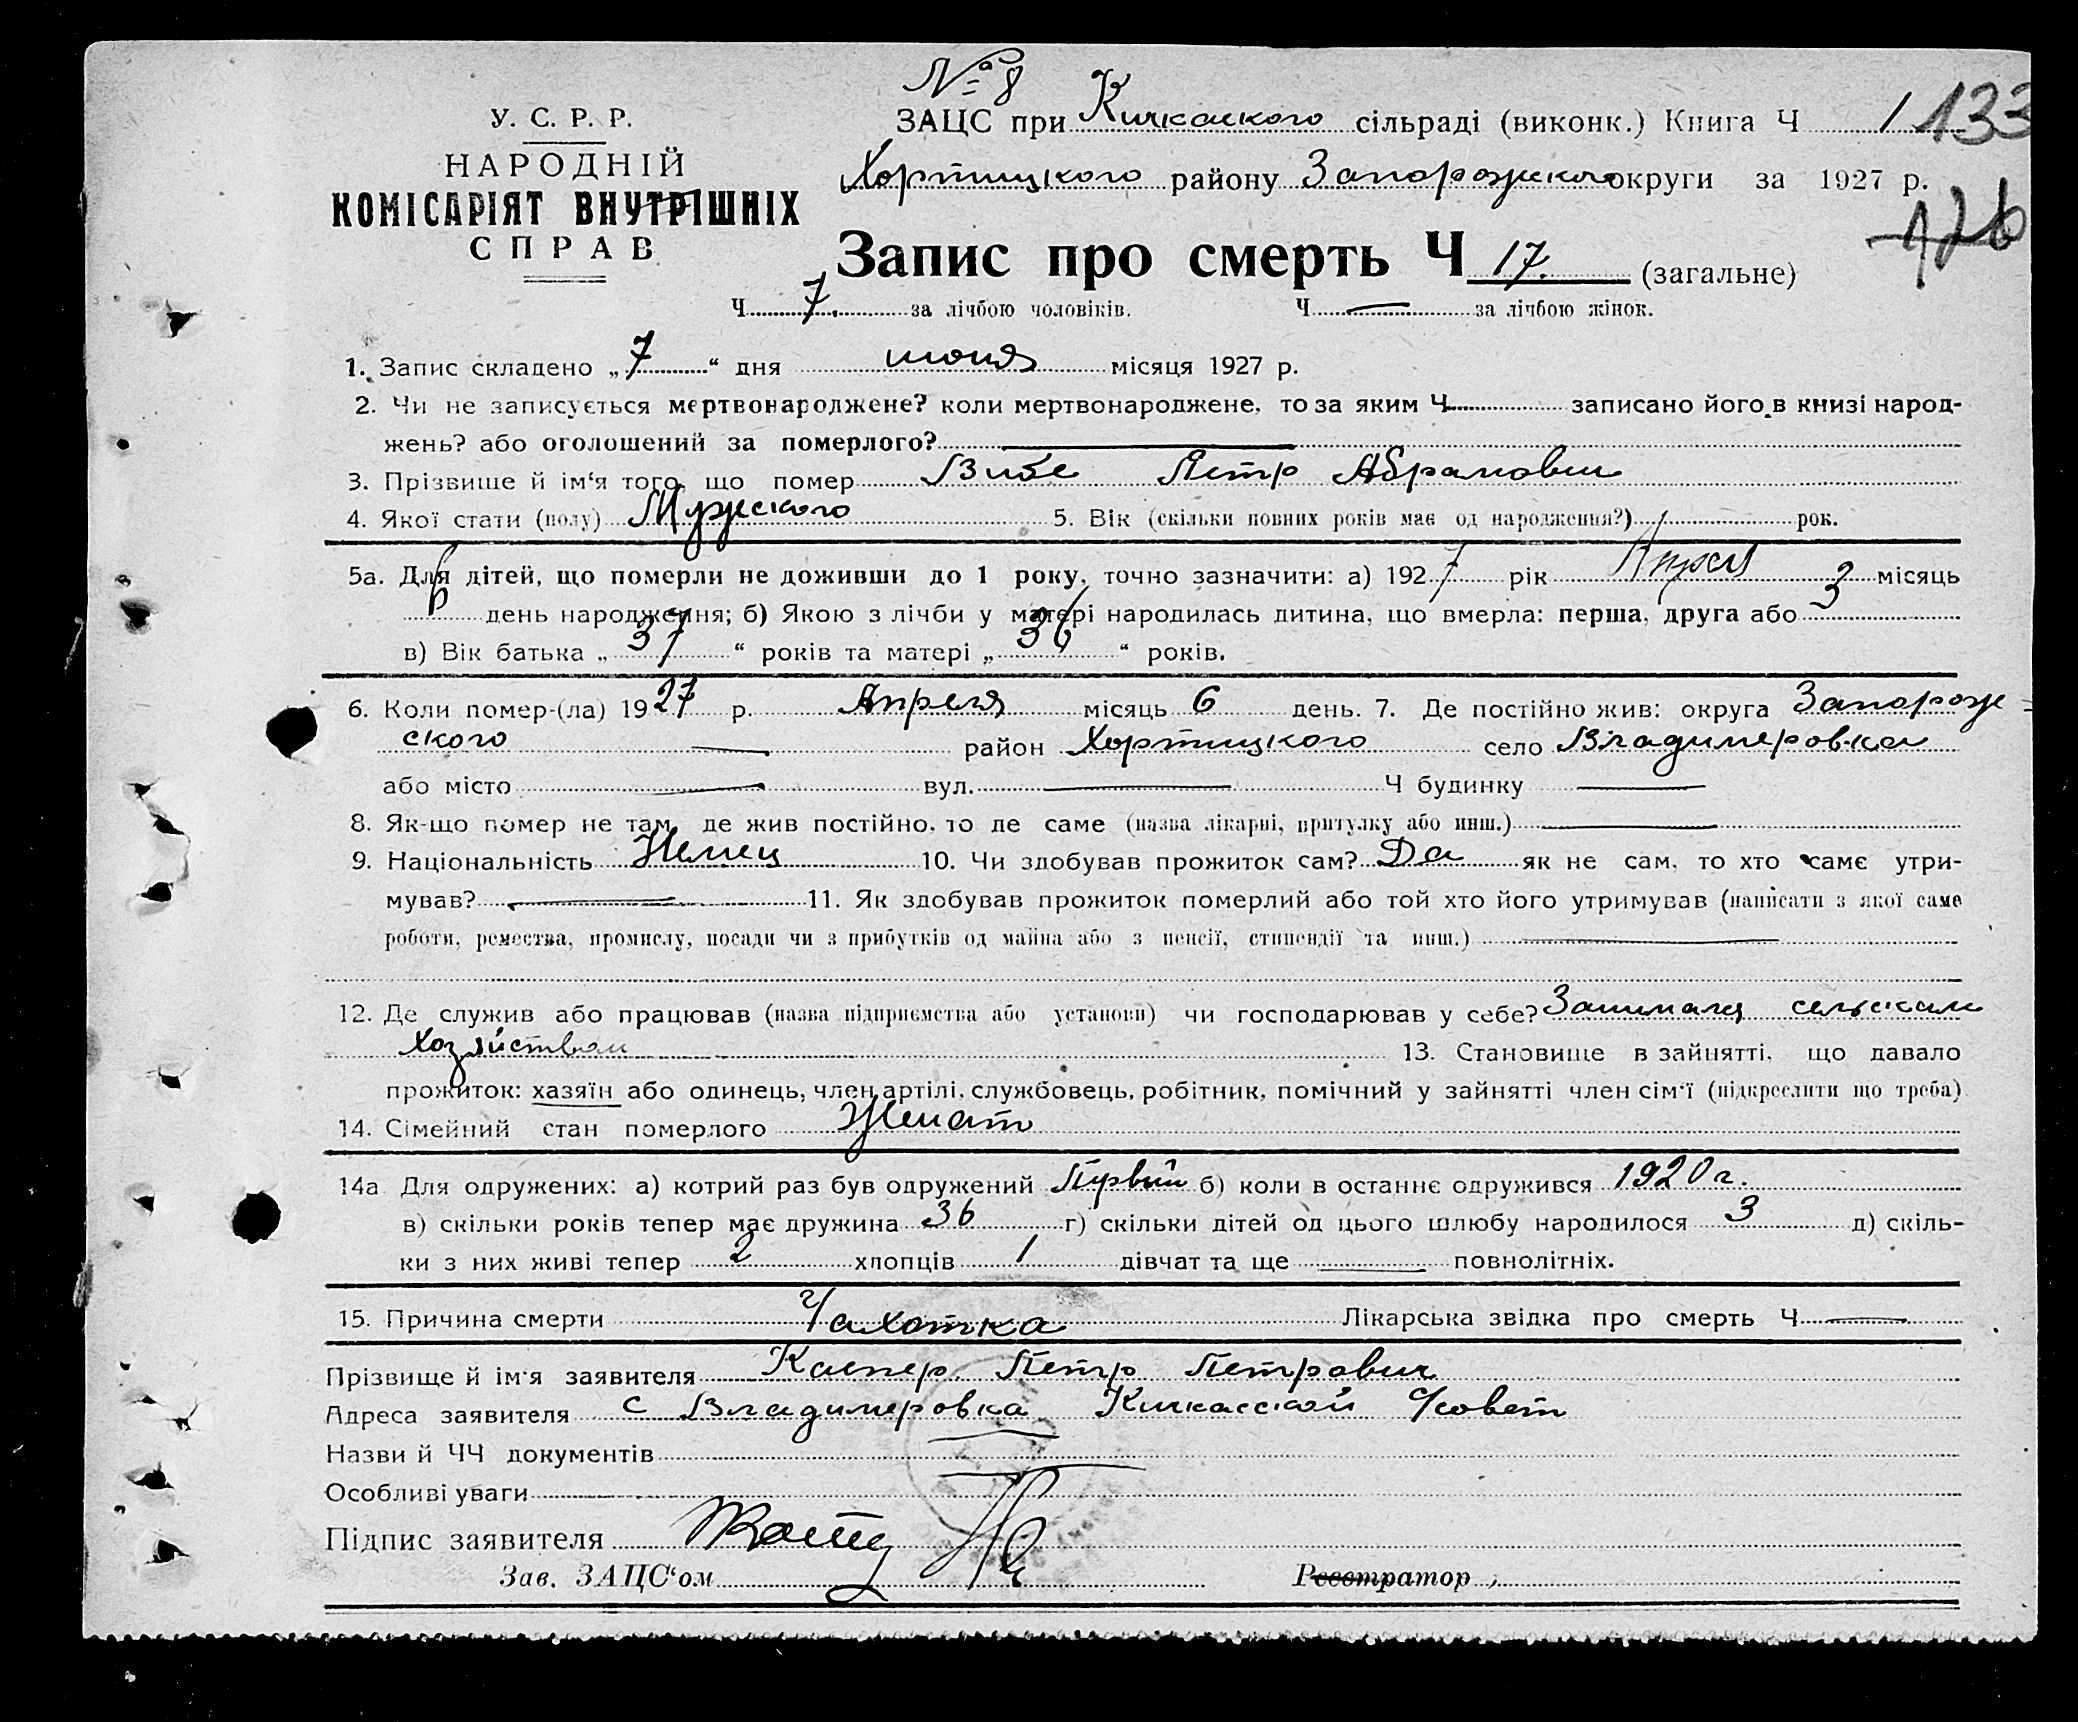 № 8
У. С. Р. Р.
НАРОДНІЙ
КОМІСАРІЯТ ВНУТРІШНІХ
СПРАВ
ЗАЦС при Кичкаского сільраді (виконк.) Книга Ч 1 133
Хортицкого району Запорожского округи за 1927 р.
126
Запис про смерть Ч 17. (загальне)
Ч 7. за лічбою чоловіків. Ч — за лічбою жінок.
1. Запис складено „7“ дня июня місяця 1927 р.
2. Чи не записується мертвонароджене? коли мертвонароджене, то за яким Ч записано його в книзі народ-
жень? або оголошений за померлого? —
3. Прізвище й ім'я того, що помер Вибе Петр Абрамович
4. Якої стати (полу) Мужеского 5. Вік (скільки повних років має од народження?) рок.
5а. Для дітей, що померли не доживши до 1 року, точно зазначити: а) 1927 рік Апреля місяць
6 день народження; б) Якою з лічби у матері народилась дитина, що вмерла: перша, друга або 3
в) Вік батька „37“ років та матері „36“ років.
6. Коли помер-(ла) 1927 р. Апреля місяць 6 день. 7. Де постійно жив: округа Запорож-
ского — район Хортицкого село Владимеровка
або місто — вул. — Ч будинку —
8. Як-що помер не там, де жив постійно, то де саме (назва лікарні, притулку або инш.) —
9. Національність Немец 10. Чи здобував прожиток сам? Да як не сам, то хто саме утри-
мував? — 11. Як здобував прожиток померлий або той хто його утримував (написати з якої саме
роботи, ремества, промислу, посади чи з прибутків од майна або з пенсії, стипендії та инш.) —
12. Де служив або працював (назва підприємства або установи) чи господарював у себе? Занимался сельским
хозяйством 13. Становище в зайнятті, що давало
прожиток: хазяїн або одинець, член артілі, службовець, робітник, помічний у зайнятті член сім'ї (підкреслити що треба)
14. Сімейний стан померлого Женат
14а Для одружених: а) котрий раз був одружений Первый б) коли в останнє одружився 1920 г.
в) скільки років тепер має дружина 36 г) скільки дітей од цього шлюбу народилося 3 д) скіль-
ки з них живі тепер 2 хлопців 1 дівчат та ще — повнолітніх.
15. Причина смерти Чахотка Лікарська звідка про смерть Ч —
Прізвище й ім'я заявителя Каспер Петр Петрович
Адреса заявителя с Владимеровка Кичкасской С/совет
Назви й ЧЧ документів —
Особливі уваги —
Підпис заявителя
Зав. ЗАЦС'ом Реєстратор